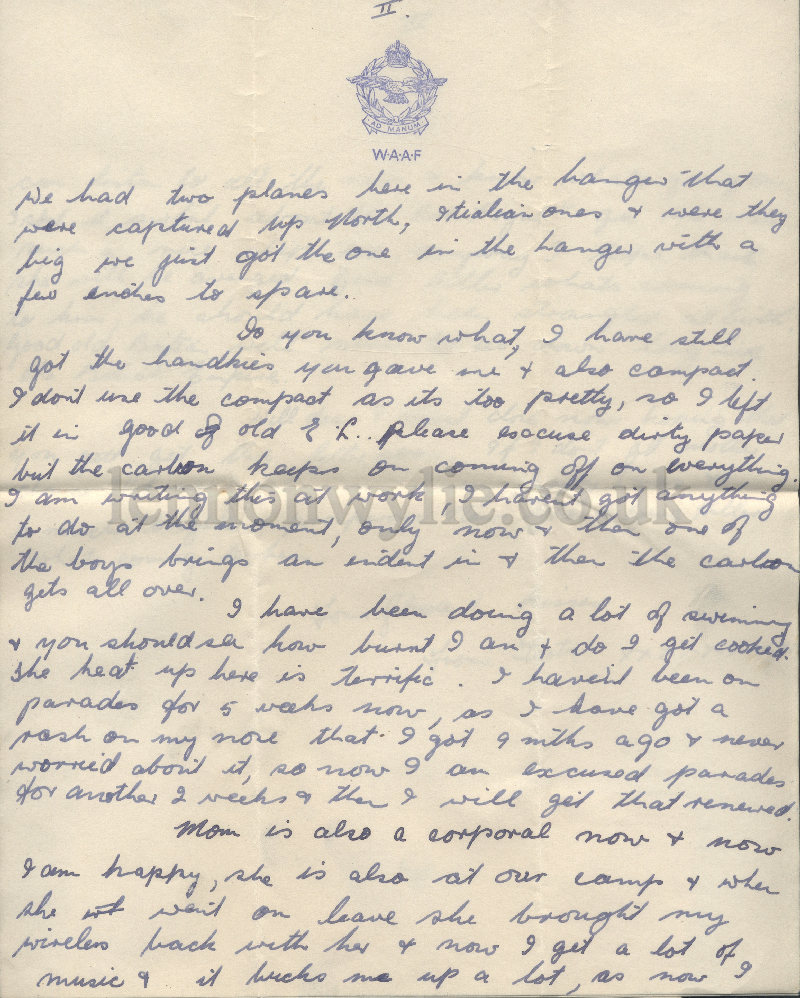 II.
AD MANUM
W·A·A·F
We had two planes here in the hanger that
were captured up North, Itialian ones & were they
big we just got the one in the hanger with a
few inches to spare.
Do you know what, I have still
got the handkies you gave me & also compact.
I don't use the compact as its too pretty, so I left
it in good of old E L.. please escuse dirty paper
but the carbon keeps on coming off on everything.
I am writing this at work, I havent got anything
to do at the moment, only now & then one of
the boys brings an indent in & then the carbon
gets all over.
I have been doing a lot of swiming
& you should see how burnt I am & do I get cooked.
The heat up here is terrific. I haven't been on
parades for 5 weeks now, as I have got a
rash on my nose that I got 9 mths ago & never
worried about it, so now I am excused parades
for another 2 weeks & then I will get that renewed.
Mom is also a corporal now & now
I am happy, she is also at our camp & when
she went on leave she brought my
wireless back with her & now I get a lot of
music & it bucks me up a lot, as now I
lennonwylie.co.uk